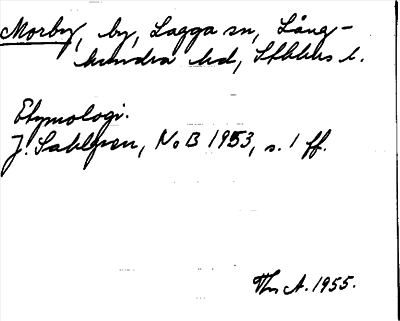 Morby, by, Lagga sn, Lång-
hundra hd, Sthlms l.
Etymologi.
J. Sahlgren, NoB 1953, s. 1 ff.
A. 1955.